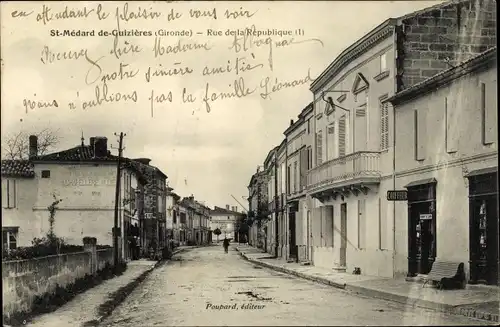 en attendant le plaisir de vous voir
St-Médard de-Guizières (Gironde) — Rue de la République (1)
chère Madame
notre sincère amitié
nous n'oublions pas la famille Léonard
COIFFEUR
Poubard, éditeur